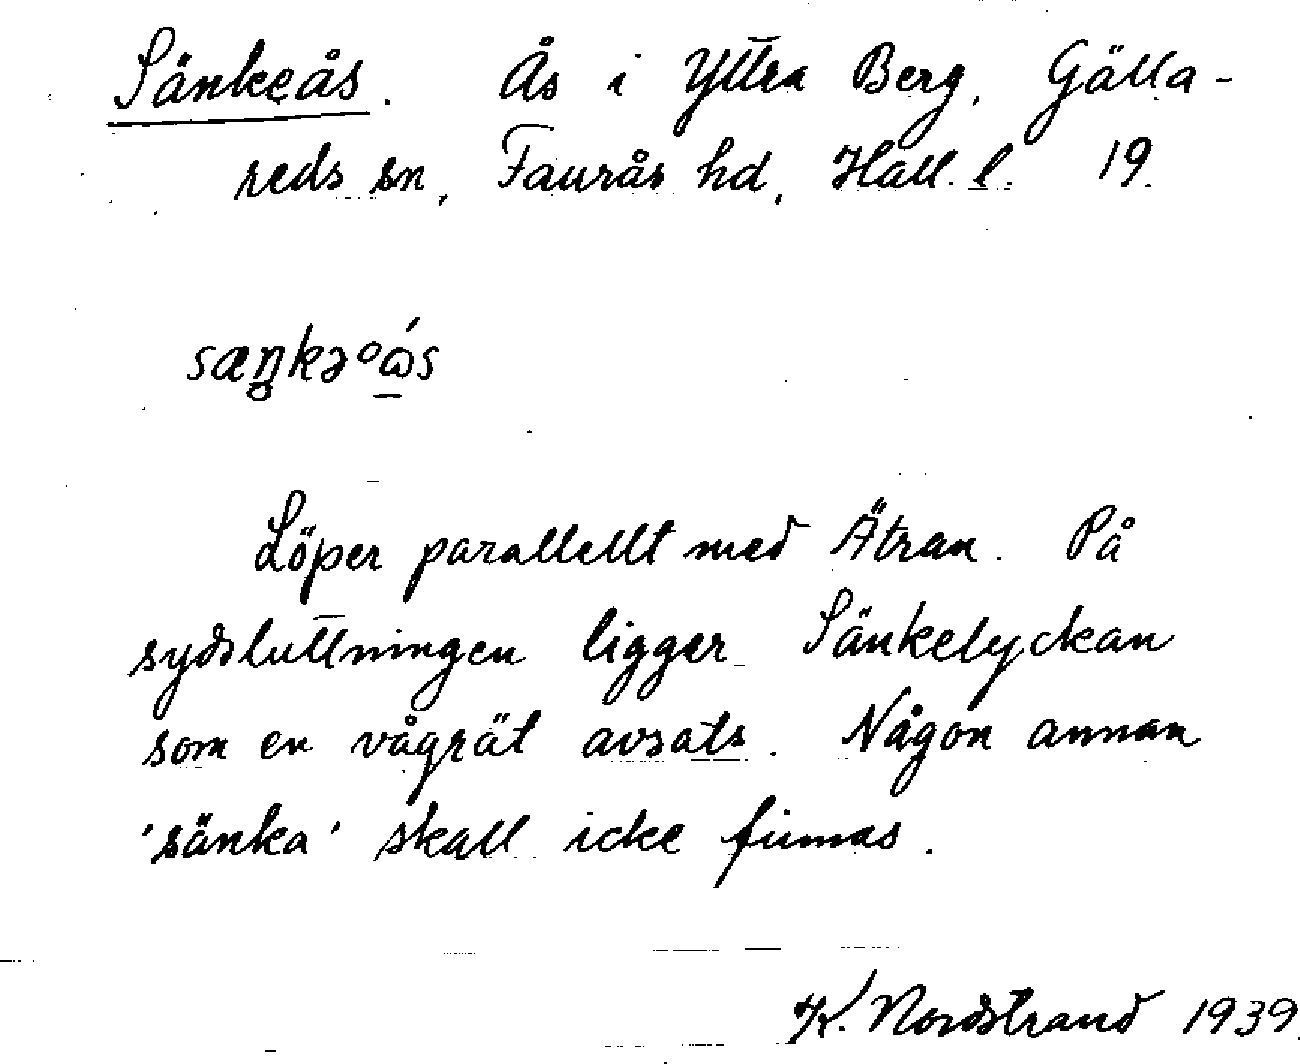 Sänkeås. Ås i Yttra Berg, Gälla-
reds sn, Faurås hd, Hall. l. 19.
Löper parallellt med Ätran. På
sydsluttningen ligger Sänkelyckan
som en vågrät avsats. Någon annan
'sänka' skall icke finnas.
K. Nordstrand 1939